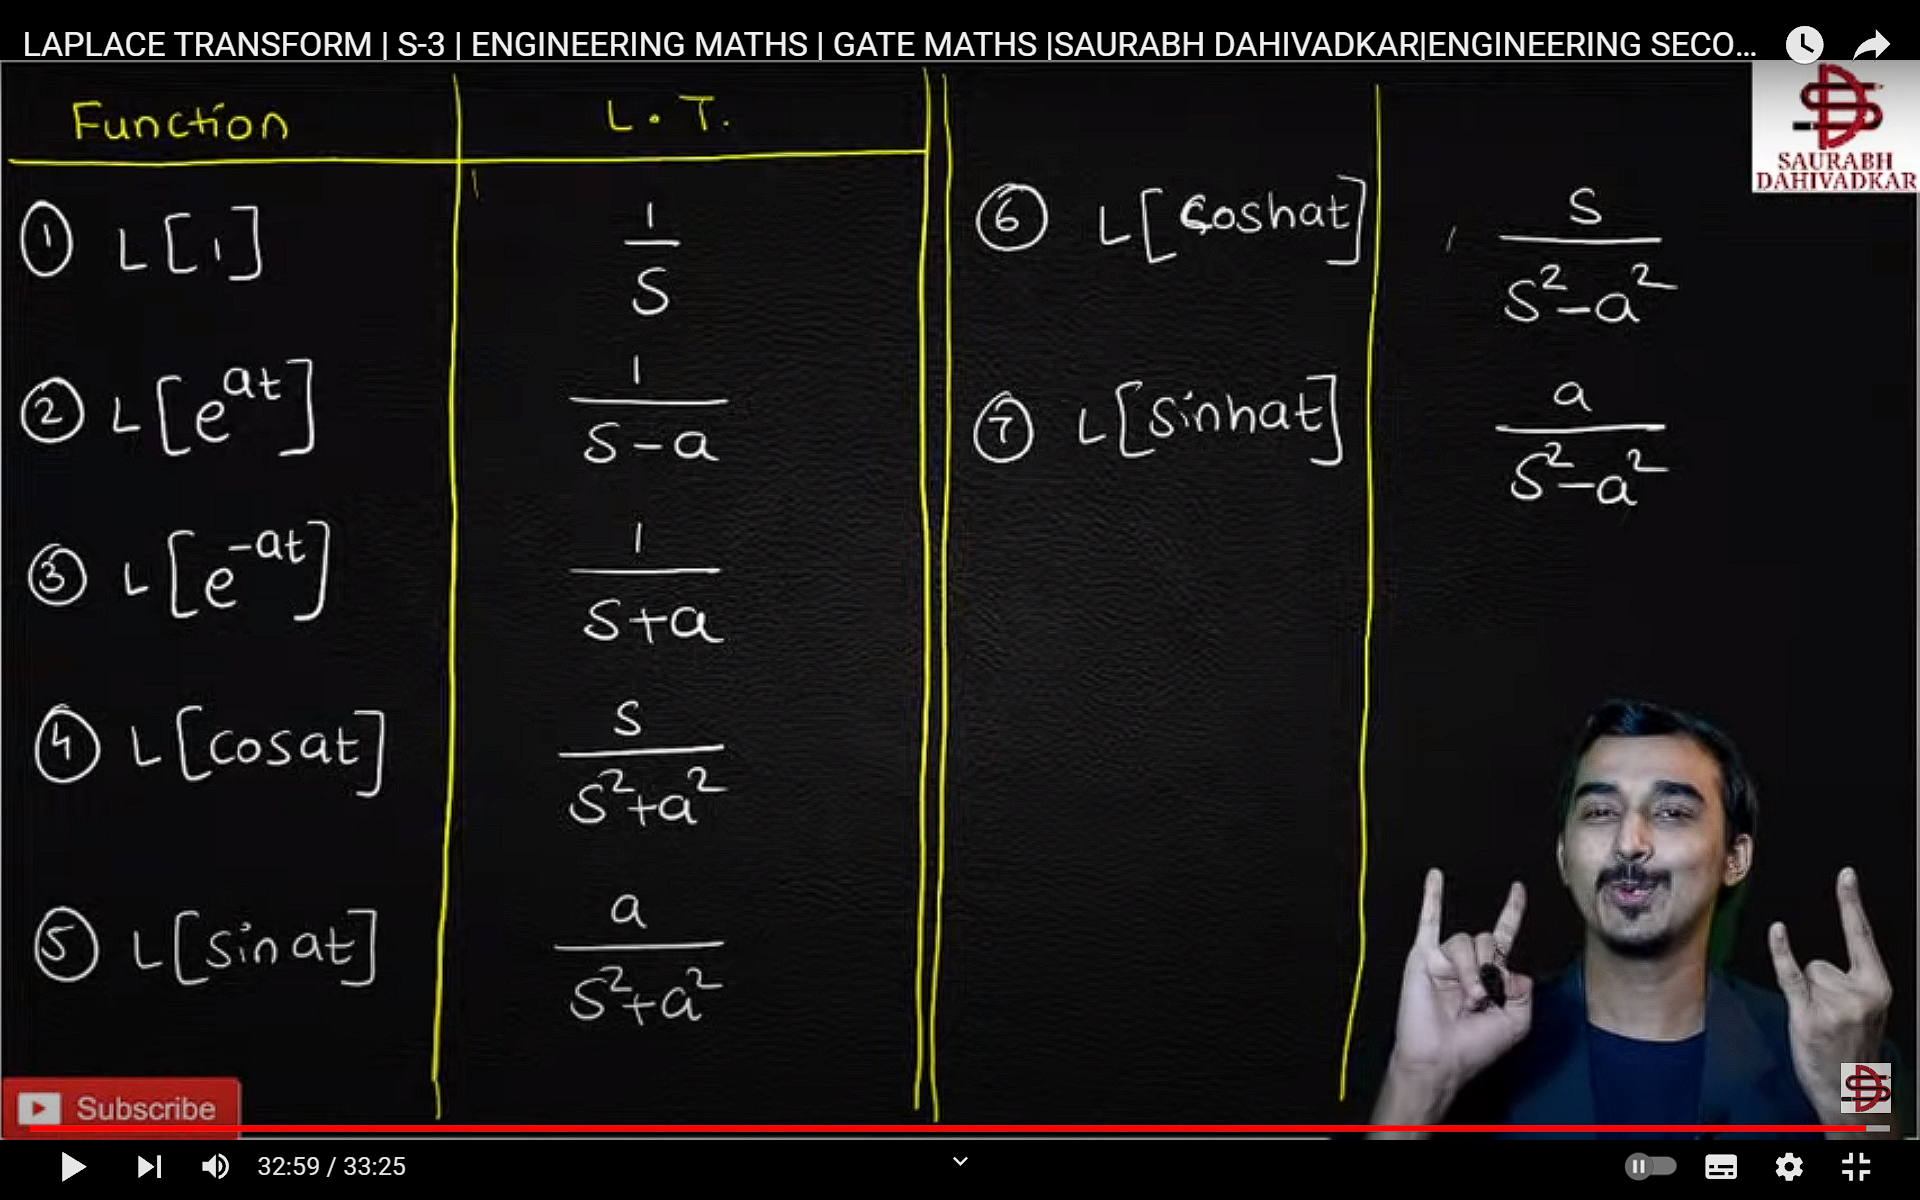 LAPLACE TRANSFORM | S-3 | ENGINEERING MATHS | GATE MATHS |SAURABH DAHIVADKAR|ENGINEERING SECO...
SAURABH
DAHIVADKAR
Function
L.T.
① L[1]
1/s
② L[e^at]
1/(s-a)
③ L[e^-at]
1/(s+a)
④ L[cosat]
s/(s²+a²)
⑤ L[sinat]
a/(s²+a²)
⑥ L[coshat]
s/(s²-a²)
⑦ L[sinhat]
a/(s²-a²)
Subscribe
32:59 / 33:25